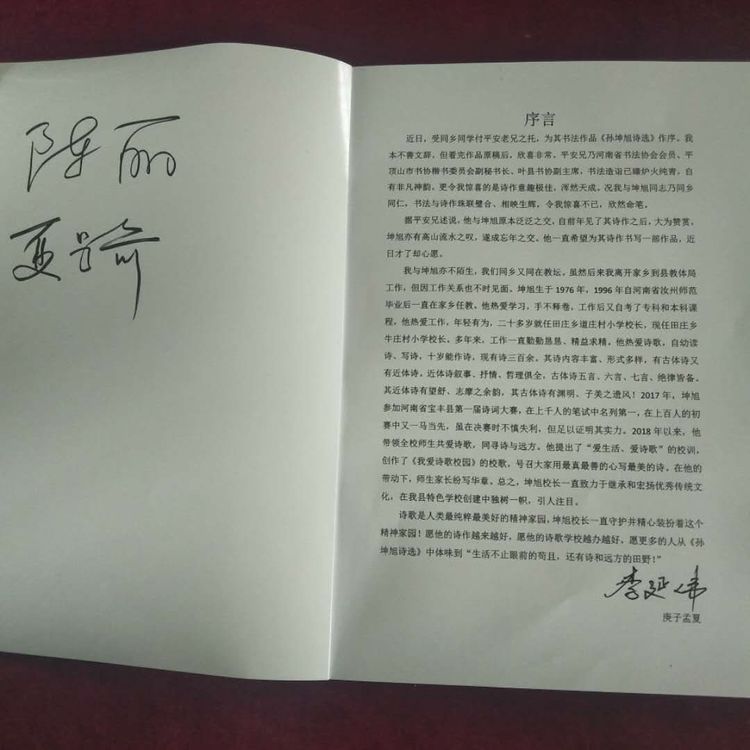 陈丽
夏
序言
近日，受同乡同学付平安老兄之托，为其书法作品《孙坤旭诗选》作序。我
本不善文辞，但看完作品原稿后，欣喜非常，平安兄乃河南省书法协会会员、平
顶山市书协楷书委员会副秘书长、叶县书协副主席，书法造诣已臻炉火纯青，自
有非凡神韵，更令我惊喜的是诗作意趣极佳，浑然天成。况我与坤旭同志乃同乡
同仁，书法与诗作珠联璧合、相映生辉，令我惊喜不已，欣然命笔。
据平安兄述说，他与坤旭原本泛泛之交，自前年见了其诗作之后，大为赞赏，
坤旭亦有高山流水之叹，遂成忘年之交。他一直希望为其诗作书写一部作品，近
日才了却心愿。
我与坤旭亦不陌生，我们同乡又同在教坛，虽然后来我离开家乡到县教体局
工作，但因工作关系也不时见面。坤旭生于1976年，1996年自河南省汝州师范
毕业后一直在家乡任教。他热爱学习，手不释卷，工作后又自考了专科和本科课
程。他热爱工作，年轻有为，二十多岁就任田庄乡道庄村小学校长，现任田庄乡
牛庄村小学校长。多年来，工作一直勤勤恳恳、精益求精。他热爱诗歌，自幼读
诗、写诗，十岁能作诗，现有诗三百余。其诗内容丰富、形式多样，有古体诗又
有近体诗。近体诗叙事、抒情、哲理俱全，古体诗五言、六言、七言、绝律皆备。
其近体诗有望舒、志摩之余韵，其古体诗有渊明、子美之遗风！2017年，坤旭
参加河南省宝丰县第一届诗词大赛，在上千人的笔试中名列第一，在上百人的初
赛中又一马当先，虽在决赛时不慎失利，但足以证明其实力。2018年以来，他
带领全校师生共爱诗歌，同寻诗与远方。他提出了“爱生活、爱诗歌”的校训，
创作了《我爱诗歌校园》的校歌，号召大家用最真最善的心写最美的诗。在他的
带动下，师生家长纷写华章。总之，坤旭校长一直致力于继承和宏扬优秀传统文
化，在我县特色学校创建中独树一帜，引人注目。
诗歌是人类最纯粹最美好的精神家园，坤旭校长一直守护并精心装扮着这个
精神家园！愿他的诗作越来越好、愿他的诗歌学校越办越好、愿更多的人从《孙
坤旭诗选》中体味到“生活不止眼前的苟且，还有诗和远方的田野！”
李延伟
庚子孟夏